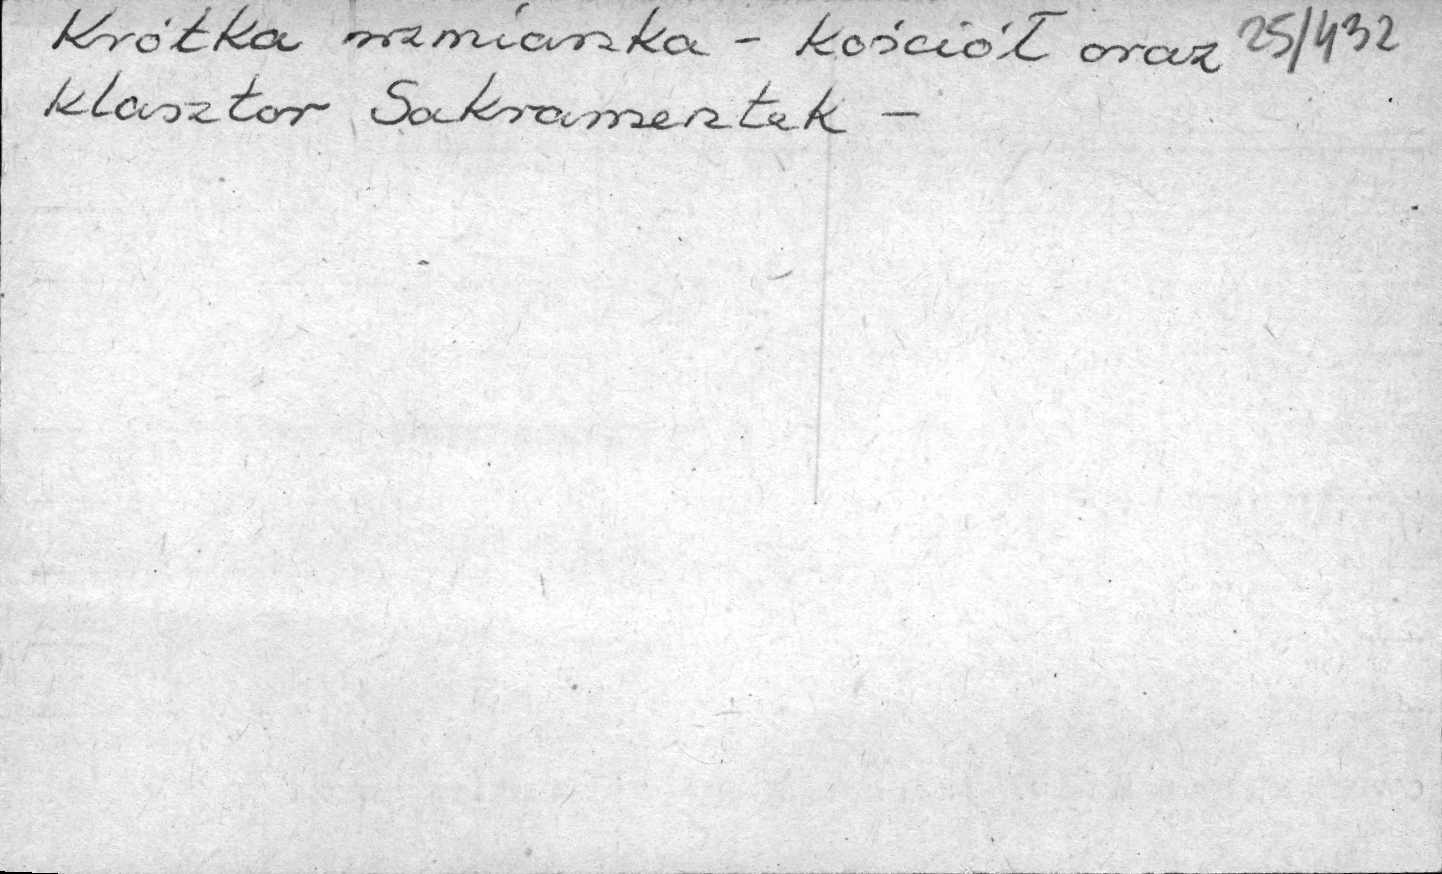 Krótka wzmianka - kościół oraz 25/432
klasztor Sakramentek -